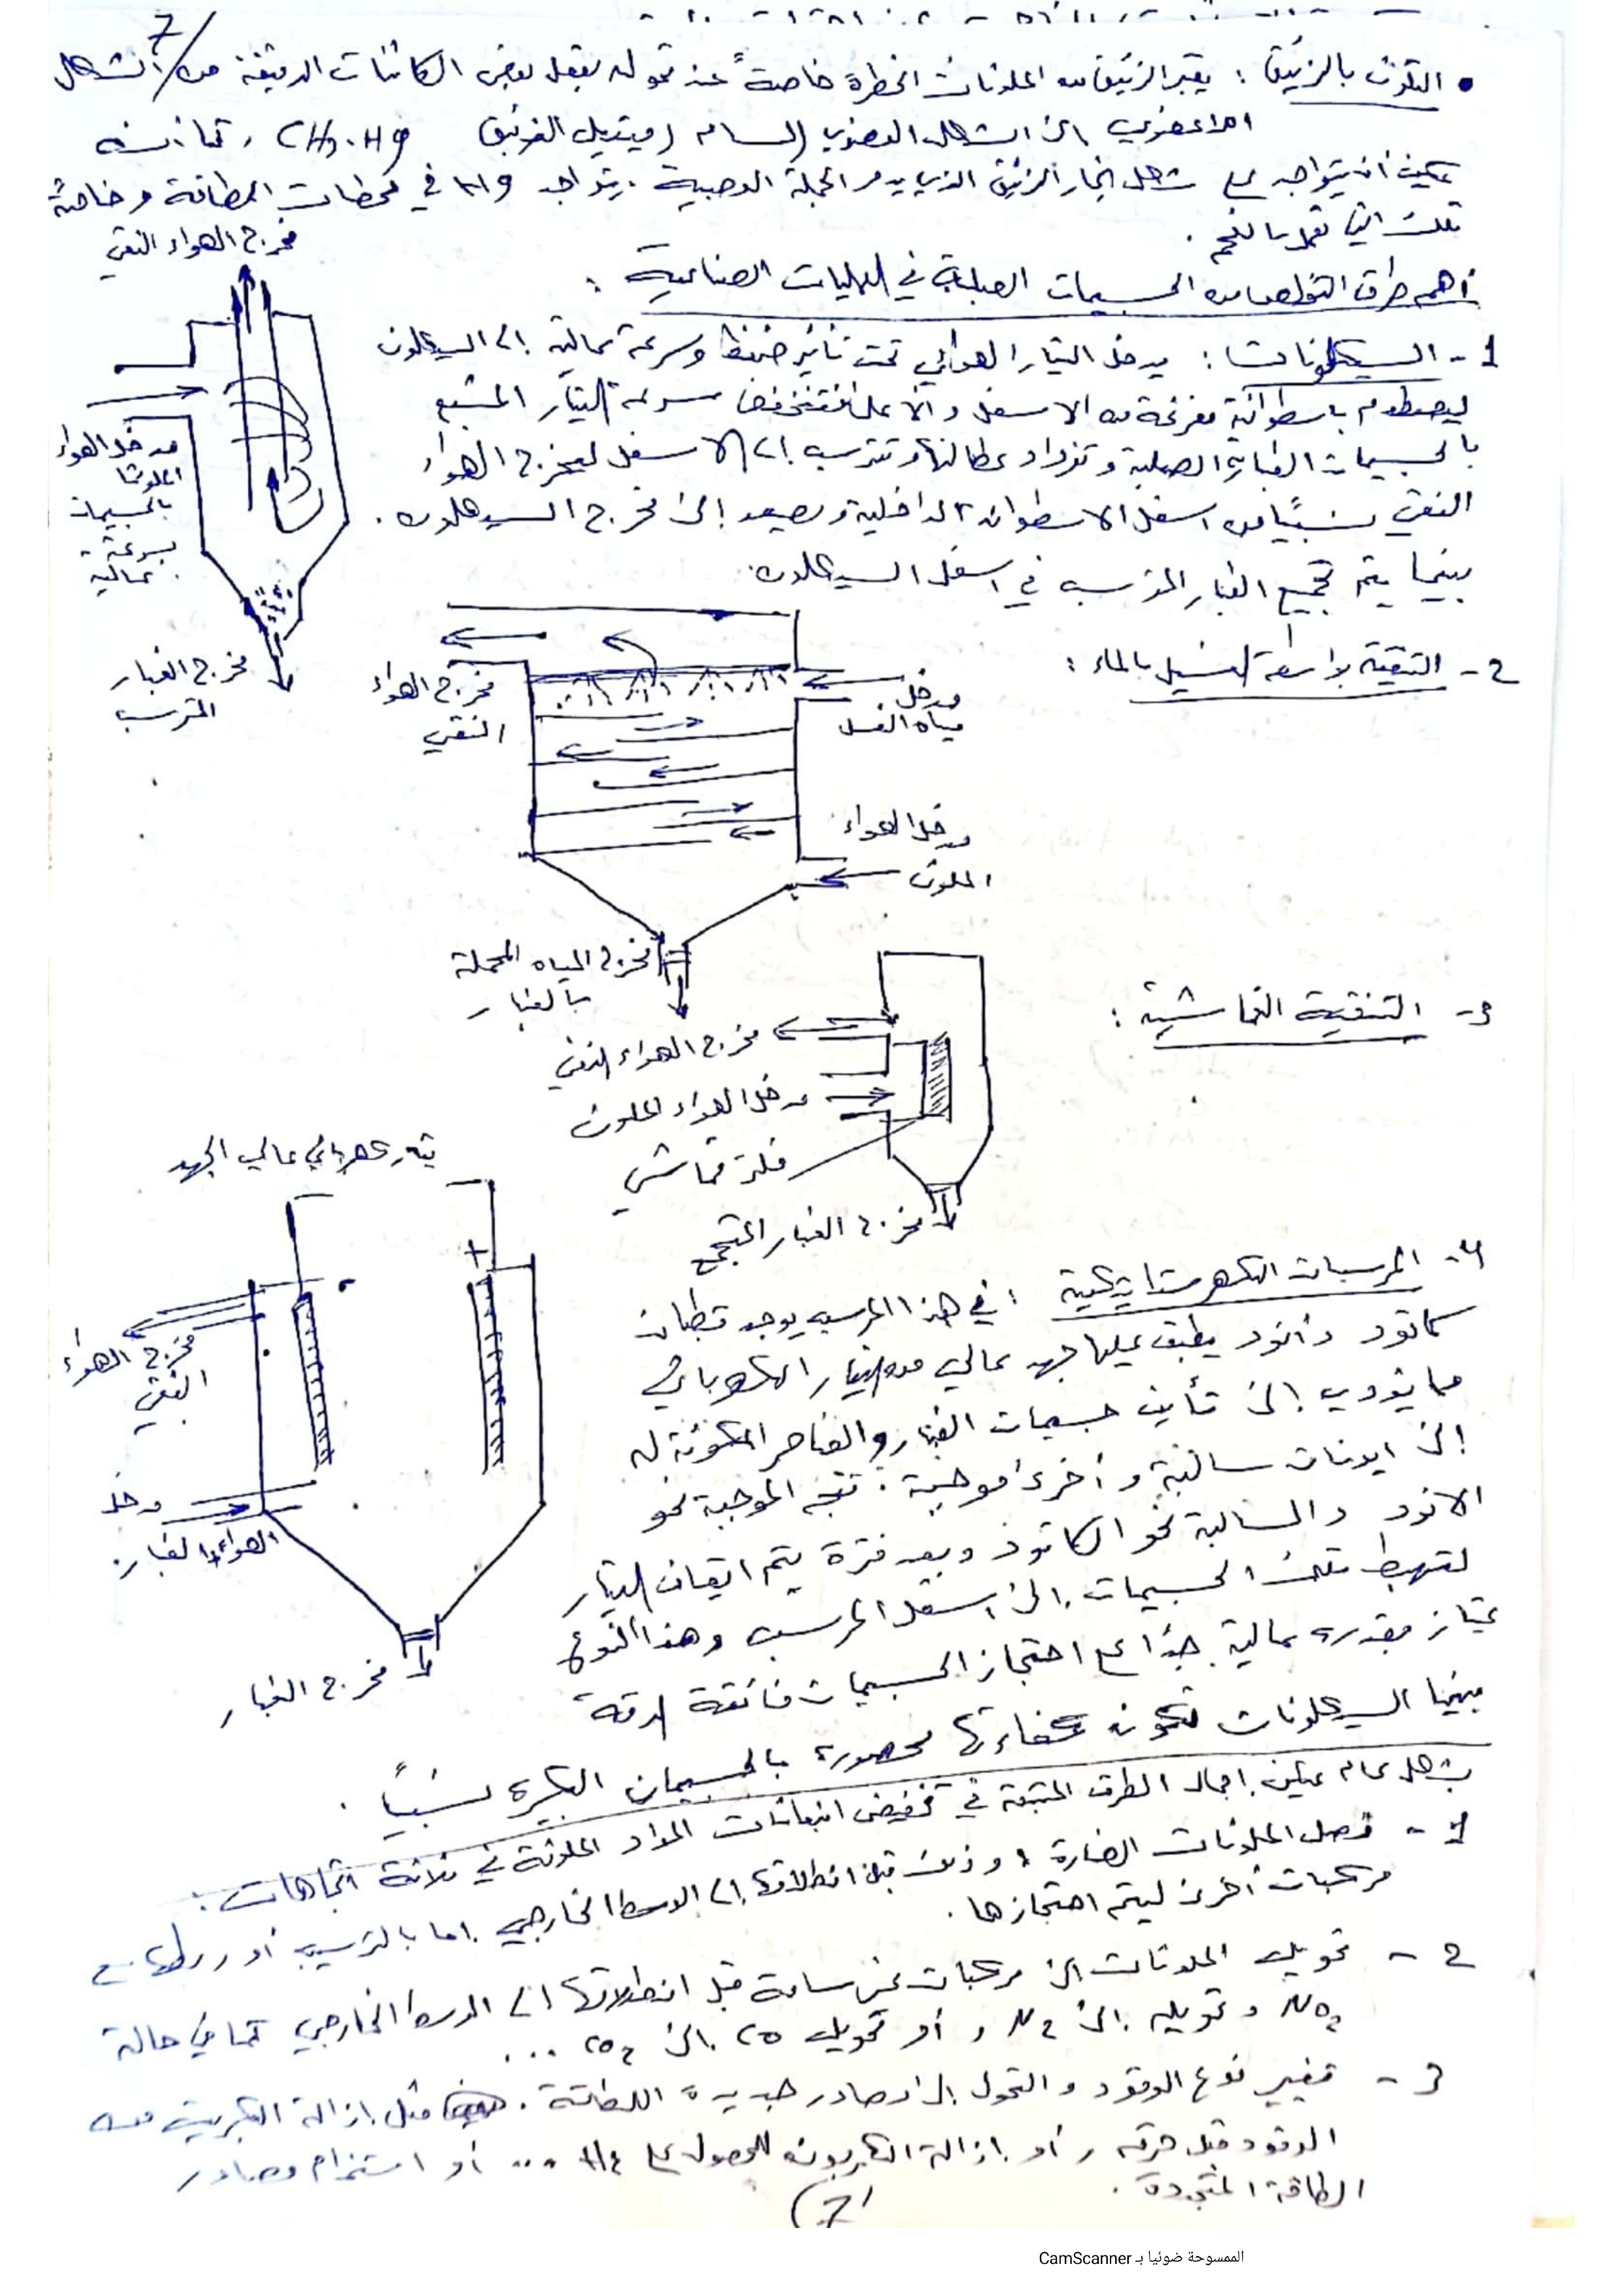 7
• التلوث بالزئبق : يعتبر الزئبق من الملوثات الخطرة خاصةً عند تحوله بفعل بعض الكائنات الدقيقة من الشكل
اللاعضوي إلى الشكل العضوي السام (ميتيل الزئبق CH3.Hg ، كما أنه
يمكن أن يتواجد على شكل بخار الزئبق الذي يدمر الجملة العصبية . يتواجد Hg في محطات الطاقة وخاصة
تلك التي تعمل بالفحم .
أهم طرق التخلص من الجسيمات الصلبة في العمليات الصناعية :
1 - السيكلونات : يدخل التيار الهوائي تحت تأثير ضغط وسرعة عالية إلى السيكلون
ليصطدم باسطوانة مفرغة من الاسفل والأعلى فتنخفض سرعة التيار المشبع
بالجسيمات الغبارية الصلبة وتزداد عطالتها وتترسب إلى الاسفل ليخرج الهواء
النقي نسبياً من اسفل الاسطوانة الداخلية ويصعد إلى مخرج السيكلون .
بينما يتم تجميع الغبار المترسب في اسفل السيكلون .
مخرج الهواء النقي
مدخل الهواء
الملوث
بالجسيمات
بسرعة
عالية
مخرج الغبار
المترسب
2 - التنقية بواسطة الغسيل بالماء :
مخرج الهواء
النقي
مدخل
مياه الغسل
مدخل الهواء
الملوث
مخرج المياه المحملة
بالغبار
3 - التنقية القماشية :
مخرج الهواء النقي
مدخل الهواء الملوث
فلتر قماشي
مخرج الغبار المتجمع
4 - المرسبات الكهرستاتيكية : في هذا المرسب يوجد قطبان
كاتود وأنود يطبق عليها جهد عالي من التيار الكهربائي
مما يؤدي إلى تأين جسيمات الغبار والعناصر المكونة له
إلى ايونات سالبة وأخرى موجبة . تتجه الموجبة نحو
الانود والسالبة نحو الكاتود وبعد فترة يتم ايقاف التيار
لتهبط تلك الجسيمات إلى اسفل المرسب وهذا النوع
يمتاز بمقدرة عالية جداً على احتجاز الجسيمات فائقة الدقة
بينما السيكلونات تكون كفاءتها محصورة بالجسيمات الكبيرة نسبياً .
تيار كهربائي عالي الجهد
+
-
مخرج الهواء
النقي
مدخل
الهواء والغبار
مخرج الغبار
بشكل عام يمكن اجمال الطرق المتبعة في تخفيض انبعاثات المواد الملوثة في ثلاثة اتجاهات :
1 - فصل الملوثات الضارة ، وذلك قبل انطلاقها إلى الوسط الخارجي إما بالترسيب أو ربطها مع
مركبات أخرى ليتم احتجازها .
2 - تحويل الملوثات إلى مركبات غير سامة قبل انطلاقها إلى الوسط الخارجي كما في حالة
NO2 وتحويله إلى N2 ، أو تحويل CO إلى CO2 ...
3 - تغيير نوع الوقود والتحول إلى مصادر جديدة للطاقة . مثل إزالة الكبريت من
الوقود قبل حرقه ، أو إزالة الكربون للحصول على H2 ... أو استخدام مصادر
الطاقة المتجددة .
7
الممسوحة ضوئيا بـ CamScanner